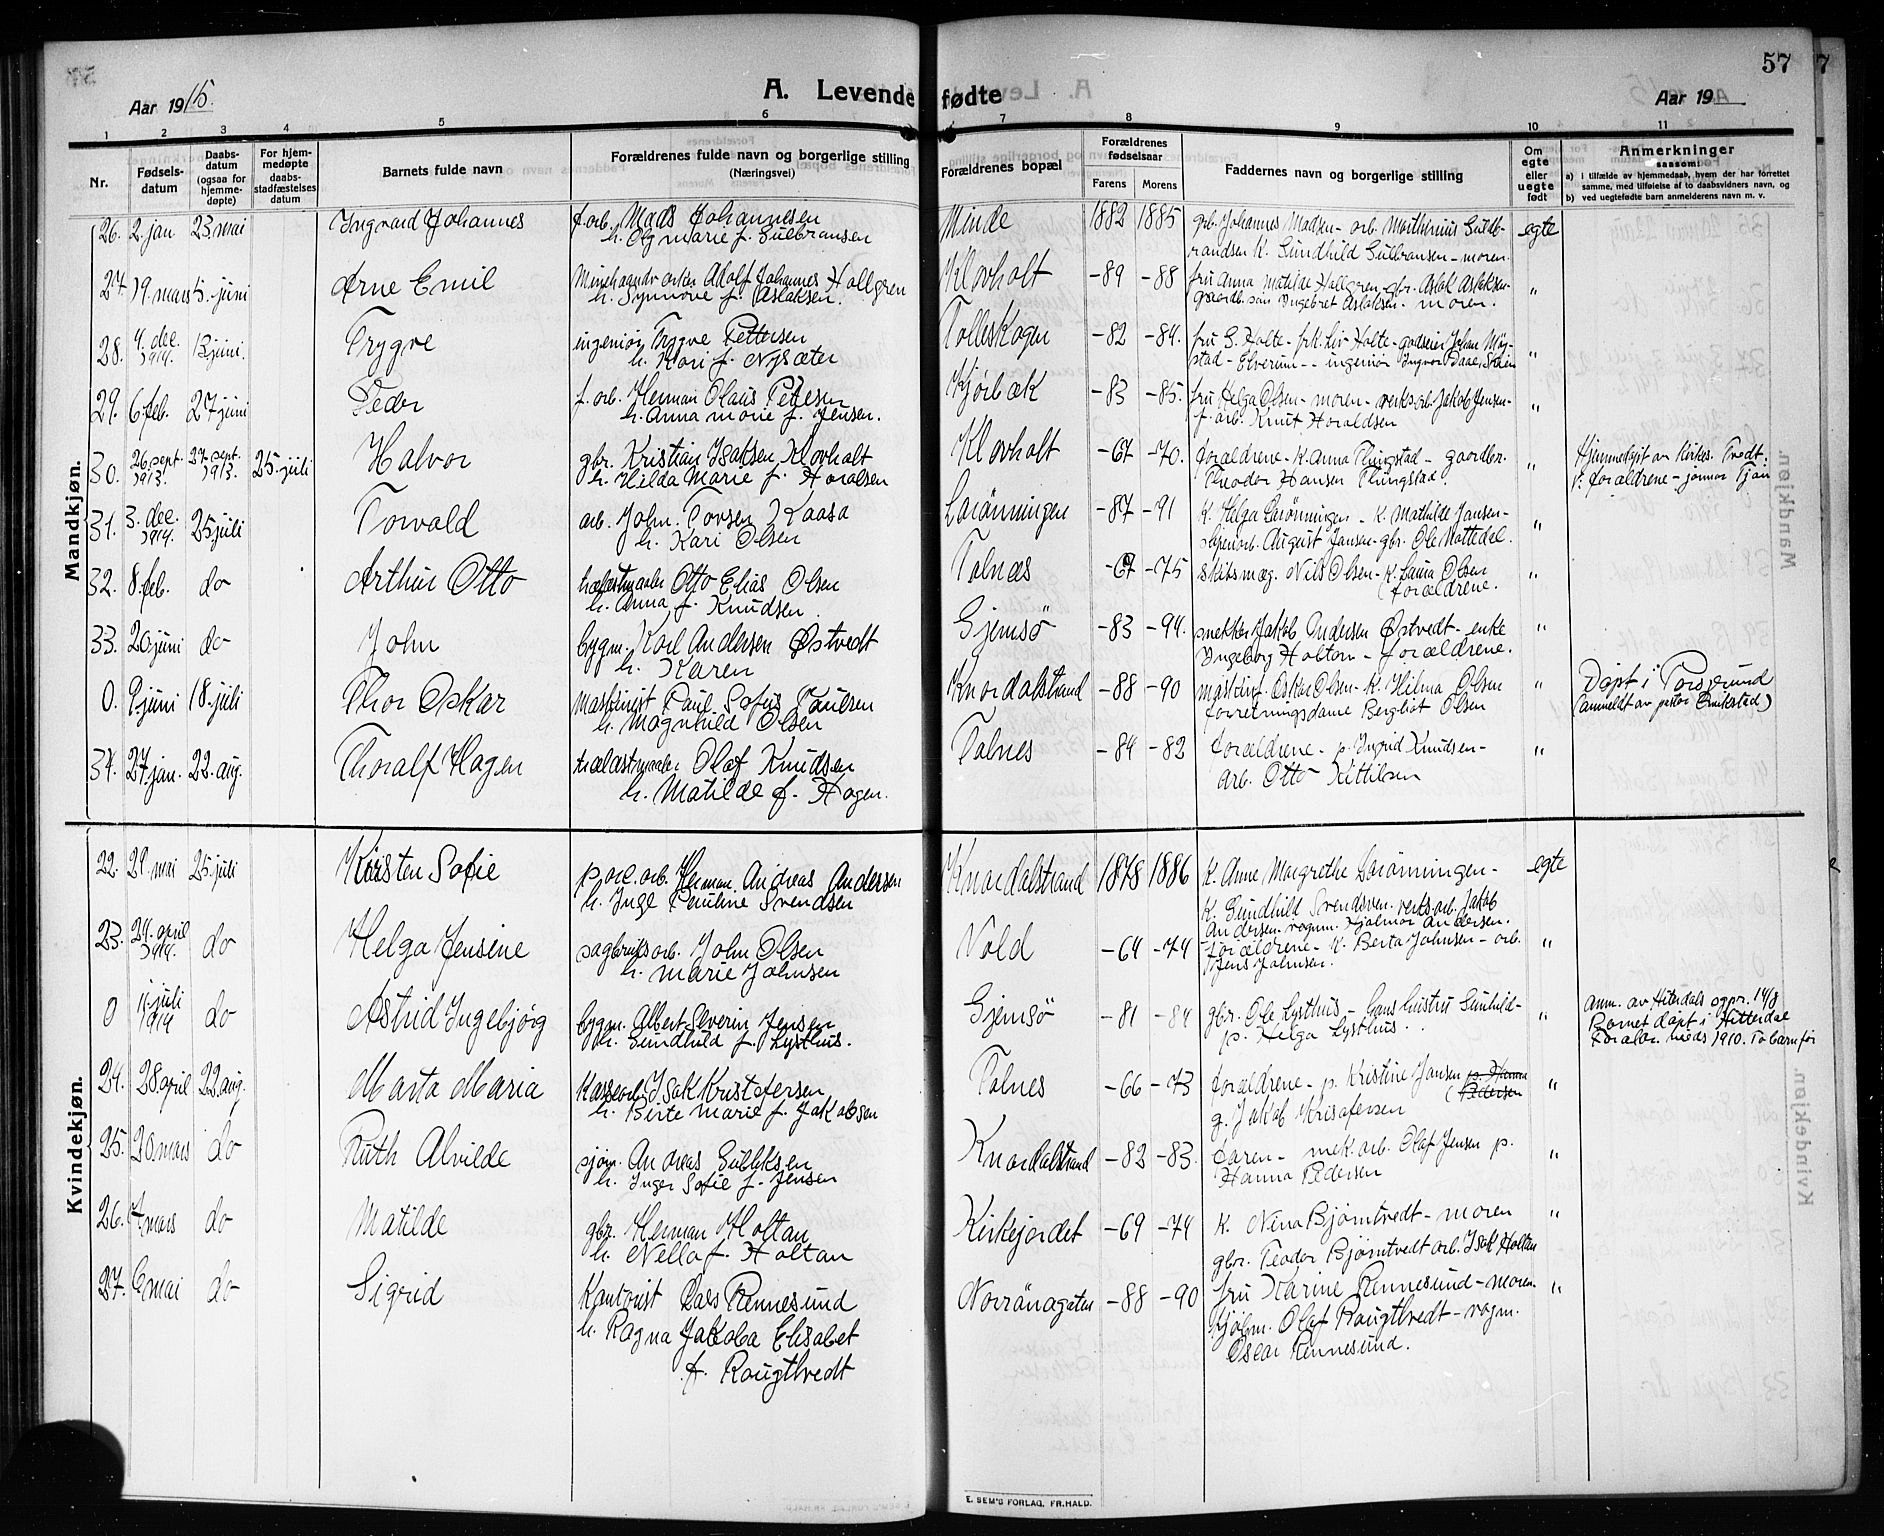 57
Aar 1915.
A. Levende fødte
Aar 19
1 2 3 4 5 6 7 8 9 10 11
Nr.
Fødsels-
datum
Daabs-
datum
(ogsaa for
hjemme-
døpte)
For hjem-
medøpte
daabs-
stadfæstelses
datum
Barnets fulde navn
Forældrenes fulde navn og borgerlige stilling
(Næringsvei)
Forældrenes bopæl
Forældrenes
fødselsaar
Farens Morens
Faddernes navn og borgerlige stilling
Om
egte
eller
uegte
født
Anmerkninger
saasom:
a) i tilfælde av hjemmedaab, hvem der har forrettet
samme, med tilføielse af to daabsvidners navn, og
b) ved uegtefødte barn anmelderens navn m. v.
Mandkjøn.
26. 2. jan 23. mai Ingvard Johannes f.arb. Mads Johannesen Minde 1882 1885 gbr. Johannes Madsen - arb. Mathinius Gulb- egte
h. Olg marie f. Gulbransen randsen K. Gundhild Gulbransen - moren
27. 19. mars 5. juni Arne Emil Adolf Johannes Hallgren Klovholt -89 -88 fru Anna Matilde Hallgren gbr. Aslak Aslaksen "
h. Synnøve f. Aslaksen. gaardb. søn Ingebret Aslaksen - moren.
28. 4. dec. 1914. 13 juni. Trygve ingeniør Trygve Pettersen Tolleskogen -82 -84. fru G. Holte - frk. Liv Holte - godseier Johan "
h. Kari f. Nysæter stad - Elverum - ingeniør Ingvar Daae,
29. 6 feb. 27 juni Peder f. arb. Herman Olaus Petersen Kjørbæk -83 -85. fru Helga Olsen - moren - verksarb. Jakob Jensen - "
h. Anna marie f. Jensen. f. arb. Knut Haraldsen
30. 26. sept. 1913. 27. sept. 1913. 25. juli Halvor gbr. Kristian Isaksen Klovholt Klovholt -67 -70. forældrene - K. Anna Thingstad - gaardbr. " Hjemmedøpt av kirkes.
h. Hilda Marie f. Haralsen Theodor Hansen Thingstad. forældrene -
31. 3. dec. 1914. 25 juli Torvald arb. John Torsen Kaasa Larønningen -87 -91 K. Helga Larønningen - K. Mathilde Jansen - "
h. Kari Olsen August Jansen - gbr. Ole
32. 8. feb. do Arthur Otto Otto Elias Olsen Tolnæs -67 -75 Nils Olsen - K. Laura Olsen "
h. Anna f. Knudsen (forældrene.
33. 20 juni do John bygm. Karl Andersen Østvedt Gjemsö -83 -94. snekker Jakob Andersen Østvedt - enke "
h. Karen Ingeborg Holtan - forældrene.
0. 9 juni 18. juli Thor Oskar Maskinist Paul Sofus Paulsen Knardalstrand -88 -90 Oskar Olsen - K. Hilma Olsen " Døpt i Porsgrund
h. Magnhild Olsen forretningsdame Bergliot Olsen (anmeldt av pastor
34. 27. jan. 22. aug. Thoralf Hagen Olaf Knudsen Tolnes -84 -82 forældrene - p. Ingrid Knudsen - "
h. Matilde f. Hagen. arb. Otto Kittilsen
Kvindekjøn.
22. 29 mai 25. juli Kirsten Sofie Herman Andreas Andersen Knardalstrand 1878 1886 K. Anne Margrethe Larønningen - egte
h. Inge Pauline Svendsen K. Gundhild Svendsen. verksarb. Jakob
Andersen. vognm. Hjalmar Andersen.
23. 24. april 1914. do Helga Jensine sagbruksarb. John Olsen Vold -64 -74 forældrene - K. Berta Johnsen - arb. "
h. marie Johnsen Jens Johnsen.
0 11. juli 1914 do Astrid Ingebjørg bygm. Albert Severin Jensen Gjemsö -81 -84 gbr. Ole Lysthus - " Anm. av Hiterdals sgpr. 14/8
h. Gundhild f. Lysthus. p. Helga Lysthus. Barnet døpt i Hitterdal
Forældr. vieds 1910. To barn før
24. 28 april 22. aug. Marta Maria Isak Kristofersen Tolnes -66 -73 forældrene - p. Kristine Jansen p. Hanna "
h. Birte Marie f. Jakobsen (Pedersen
g. Jakob Krisofersen
25. 20 mars do Ruth Alvilde sjøm. Andreas Gulliksen Knardalstrand -82 -83. faren - mek. arb. Olaf Jensen p. "
h. Inger Sofie f. Jensen Hanna Pedersen
26. mars do Matilde gbr. Herman Holtan Kirkejordet -69 -74 K. Nina Bjørntvedt - moren "
h. Nella f. Holtan gbr. Teodor Bjørntvedt arb. Isak Holtan
27. 6 mai do Sigrid Kontorist Lars Rennesund Norrönagaten -88 -90 fru Karine Rennesund - moren. "
h. Ragna Jakoba Elisabet Kjøbm. Olaf Raugtvedt - vognm.
f. Raugtvedt Oscar Rennesund.
E. SEM'S FORLAG, FR.HALD.